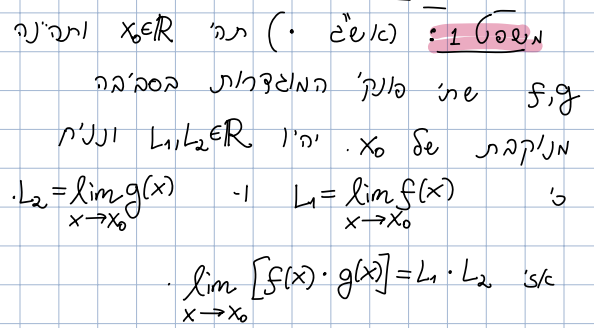 משפט 1: (אש"ג ·) תהי x₀∈ℝ ותהיינה
f,g שתי פונק' המוגדרות בסביבה
מנוקבת של x₀. יהיו L₁,L₂∈ℝ ונניח
כי L₁ = lim_{x→x₀} f(x) ו- L₂ = lim_{x→x₀} g(x).
אזי lim_{x→x₀} [f(x)·g(x)] = L₁·L₂.